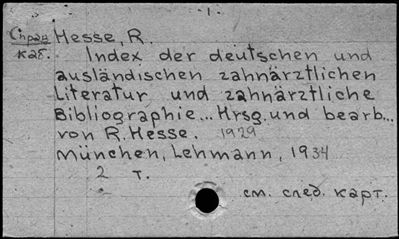 - 1. -
Справ. Hesse, R.
каб. Index der deutschen und
ausländischen zahnärztlichen
Literatur und zahnärztliche
Bibliographie... Hrsg. und bearb...
von R. Hesse. 1929
München, Lehmann, 1934
2 т.
см. след. карт.